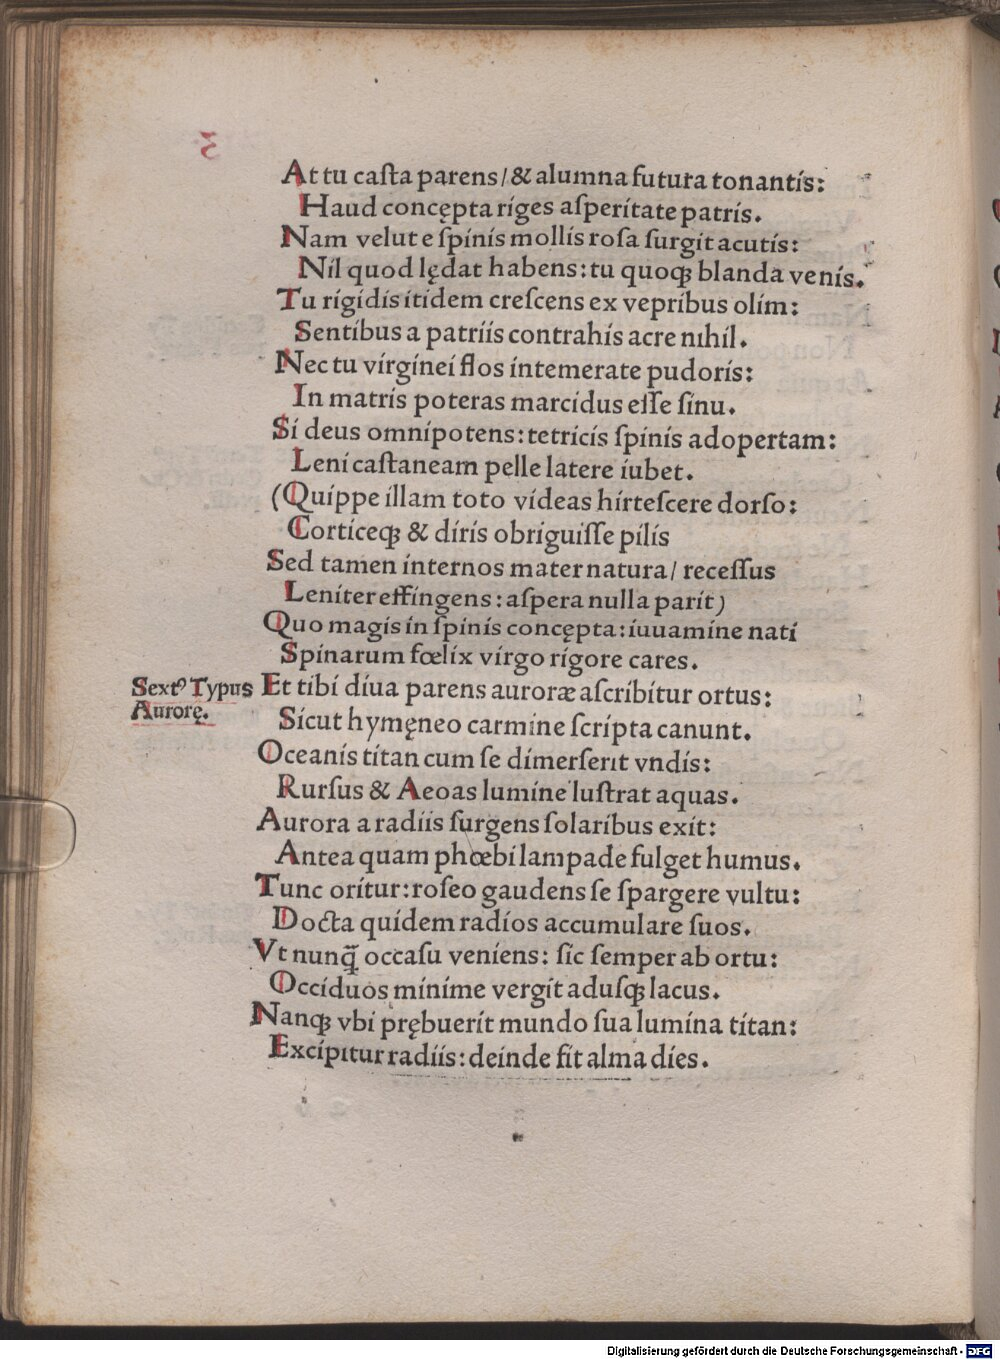 At tu caſta parens/ & alumna futura tonantis:
Haud concępta riges aſperitate patris.
Nam velut e ſpinis mollis roſa ſurgit acutis:
Nil quod lędat habens: tu quoqꝫ blanda venis.
Tu rigidis itidem creſcens ex vepribus olim:
Sentibus a patriis contrahis acre nihil.
Nec tu virginei flos intemerate pudoris:
In matris poteras marcidus eſſe ſinu.
Si deus omnipotens: tetricis ſpinis adopertam:
Leni caſtaneam pelle latere iubet.
(Quippe illam toto videas hirteſcere dorſo:
Corticeqꝫ & diris obriguiſſe pilis
Sed tamen internos mater natura/ receſſus
Leniter effingens: aſpera nulla parit)
Quo magis in ſpinis concępta: iuuamine nati
Spinarum fœlix virgo rigore cares.
Sextꝰ Typus
Aurorę.
Et tibi diua parens auroræ aſcribitur ortus:
Sicut hymęneo carmine ſcripta canunt.
Oceanis titan cum ſe dimerſerit vndis:
Rurſus & Aeoas lumine luſtrat aquas.
Aurora a radiis ſurgens ſolaribus exit:
Antea quam phœbi lampade fulget humus.
Tunc oritur: roſeo gaudens ſe ſpargere vultu:
Docta quidem radios accumulare ſuos.
Vt nunꝙ̃ occaſu veniens: ſic ſemper ab ortu:
Occiduos minime vergit aduſqꝫ lacus.
Nanqꝫ vbi prębuerit mundo ſua lumina titan:
Excipitur radiis: deinde fit alma dies.
Digitalisierung gefördert durch die Deutsche Forschungsgemeinschaft - DFG